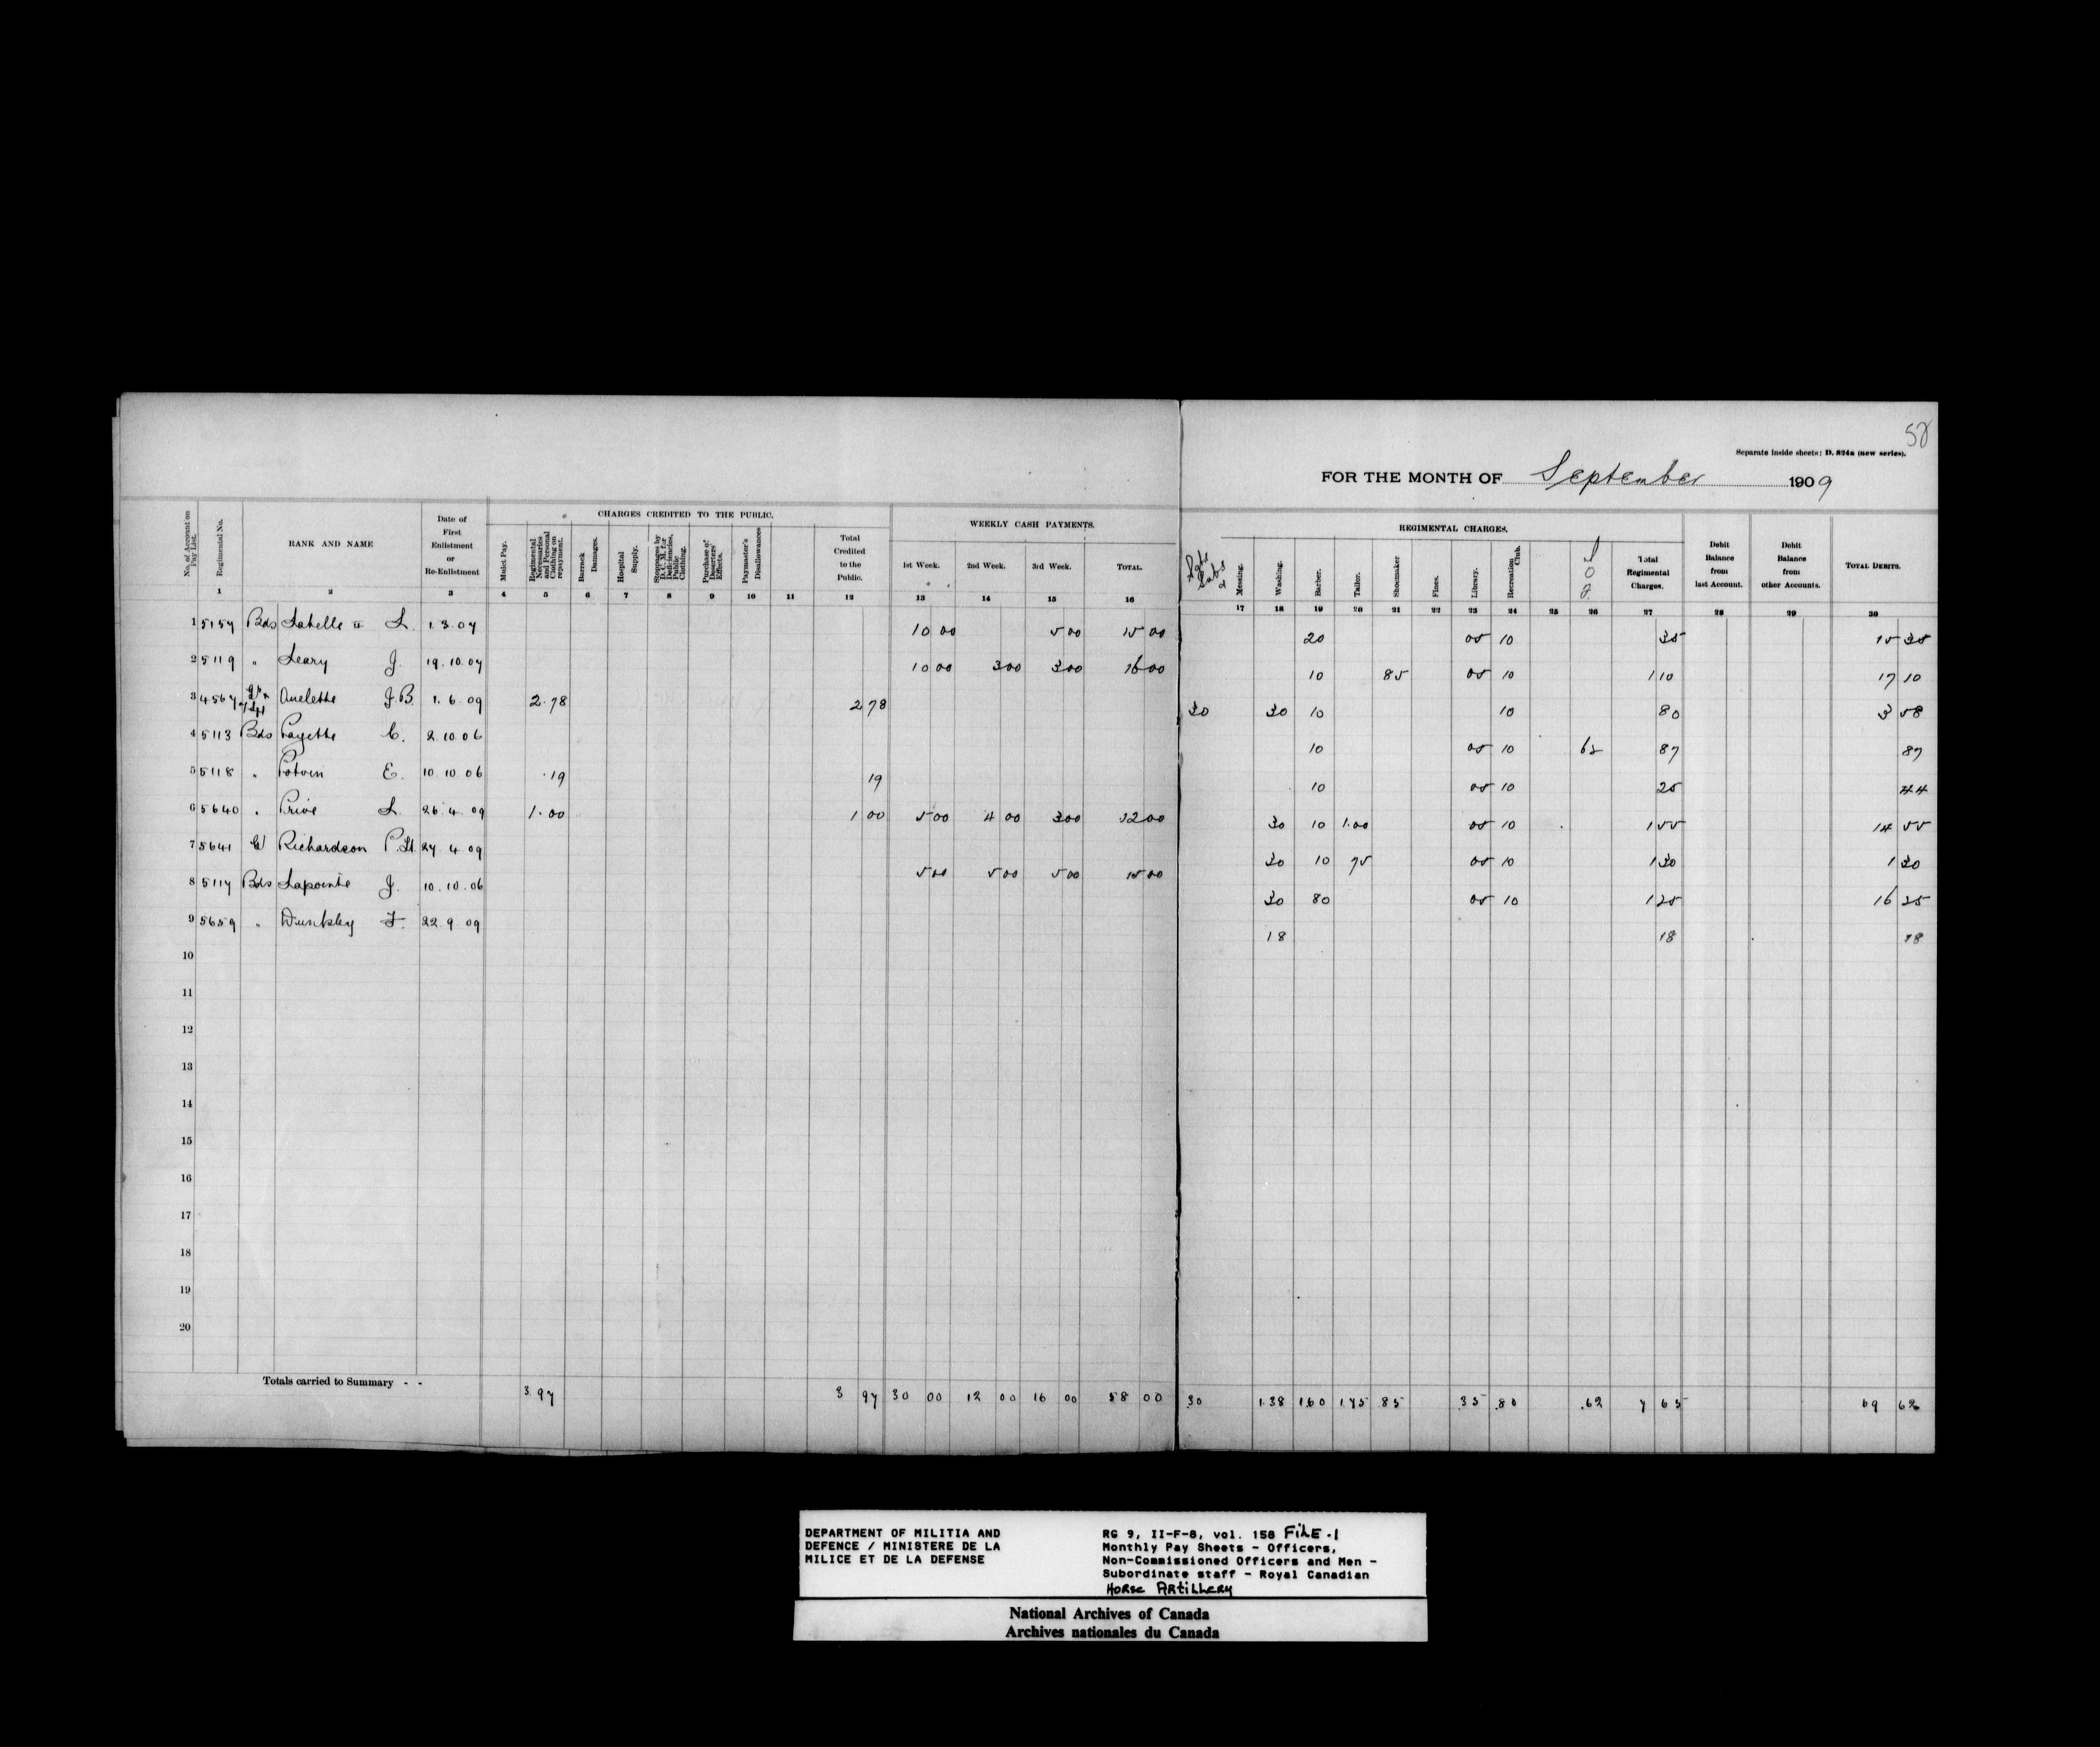 58
Separate inside sheets: D. 824a (new series).
FOR THE MONTH OF September 1909
No. of Account on Pay List.
Regimental No.
RANK AND NAME
Date of First Enlistment or Re-Enlistment
CHARGES CREDITED TO THE PUBLIC.
Mulct Pay.
Regimental Necessaries and Personal Clothing on repayment.
Barrack Damages.
Hospital Supply.
Stoppages by D. C. M. for Deficiencies, Public Clothing.
Purchase of Deserters' Effects.
Paymaster's Disallowances
Total Credited to the Public.
WEEKLY CASH PAYMENTS.
1st Week. 2nd Week. 3rd Week. TOTAL.
REGIMENTAL CHARGES.
Messing.
Washing.
Barber.
Tailor.
Shoemaker
Fines.
Library.
Recreation Club.
Total Regimental Charges.
Debit Balance from last Account.
Debit Balance from other Accounts.
TOTAL DEBITS.
1 2 3 4 5 6 7 8 9 10 11 12 13 14 15 16 17 18 19 20 21 22 23 24 25 26 27 28 29 30
1 5157 Bdr Labelle II L. 1.3.07 10 00 5 00 15 00 20 05 10 35 15 35
2 5119 " Leary J. 19.10.07 10 00 3 00 3 00 16 00 10 85 05 10 1 10 17 10
3 4567 Ouelette J.B. 1.6.09 2.78 2 78 30 30 10 10 80 3 58
4 5113 Bdr Payette C. 2.10.06 10 05 10 62 87 87
5 5118 " Potvin E. 10.10.06 .19 19 10 05 10 25 44
6 5640 " Privé L. 26.4.09 1.00 1 00 5 00 4 00 3 00 12 00 30 10 1.00 05 10 1 55 14 55
7 5641 Richardson P. 27.4.09 30 10 75 05 10 1 30 1 30
8 5117 Bdr Lapointe J. 10.10.06 5 00 5 00 5 00 15 00 30 80 05 10 1 25 16 25
9 5659 " Dunkley F. 22.9.09 18 18 18
10
11
12
13
14
15
16
17
18
19
20
Totals carried to Summary - - 3.97 3 97 30 00 12 00 16 00 58 00 .30 1.38 1.60 1.75 .85 .35 .80 .62 7 65 69 62
DEPARTMENT OF MILITIA AND
DEFENCE / MINISTERE DE LA
MILICE ET DE LA DEFENSE
RG 9, II-F-8, vol. 158 FiLE.1
Monthly Pay Sheets - Officers,
Non-Commissioned Officers and Men -
Subordinate staff - Royal Canadian
Horse ARtiLLeRy
National Archives of Canada
Archives nationales du Canada